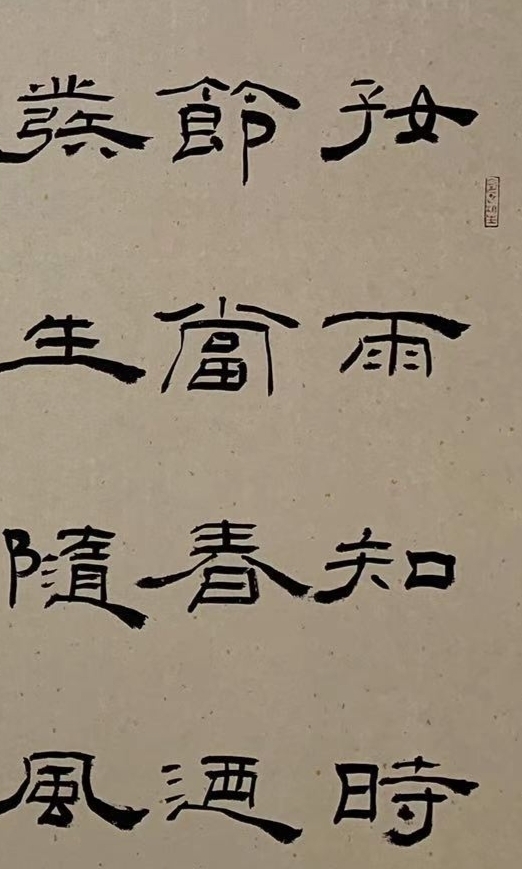 好雨知時
節當春迺
發生隨風